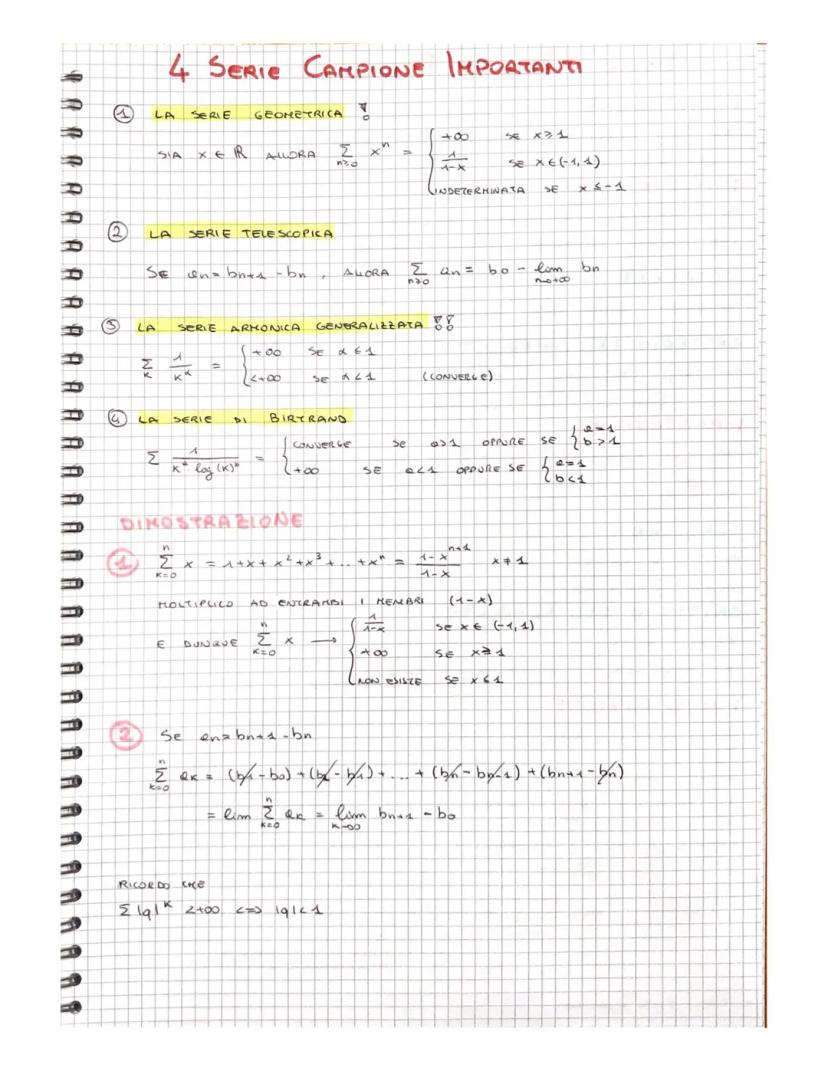 4 SERIE CAMPIONE IMPORTANTI
① LA SERIE GEOMETRICA !
SIA x ∈ ℝ ALLORA Σ_{n≥0} x^n = { +∞ SE x≥1
1/(1-x) SE x∈(-1,1)
INDETERMINATA SE x≤-1
② LA SERIE TELESCOPICA
SE an = bn+1 - bn , ALLORA Σ_{n≥0} an = b0 - lim_{n→+∞} bn
③ LA SERIE ARMONICA GENERALIZZATA !!
Σ_K 1/K^α = { +∞ SE α≤1
<+∞ SE α<1 (CONVERGE)
④ LA SERIE DI BIRTRAND
Σ 1/(K^a log(K)^b) = { CONVERGE SE a>1 OPPURE SE { a=1 b>1
+∞ SE a<1 OPPURE SE { a=1 b<1
DIMOSTRAZIONE
① Σ_{K=0}^{n} x = 1+x+x²+x³+...+x^n = (1-x^{n+1})/(1-x) x≠1
MOLTIPLICO AD ENTRAMBI I MEMBRI (1-x)
E DUNQUE Σ_{K=0}^{n} x → { 1/(1-x) SE x∈(-1,1)
+∞ SE x≥1
NON ESISTE SE x≤1
② SE an=bn+1-bn
Σ_{K=0}^{n} aK = (b1-b0)+(b2-b1)+...+(bn-bn-1)+(bn+1-bn)
= lim Σ_{K=0}^{n} aK = lim_{K→∞} bn+1 - b0
RICORDO CHE
Σ|q|^K <+∞ <=> |q|<1